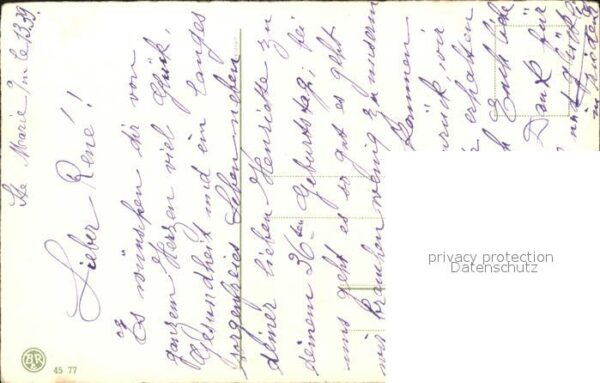 Ste Marie
Lieber René!
Es wünschen dir von
ganzem Herzen viel Glück,
Gesundheit und ein langes
sorgenfreies Leben neben
deiner lieben Henriette zu
deinem 26ten Geburtstag; bei
uns geht es so gut es geht
wir brauchen wenig zu
kommen
zurück wir
erhalten
Euch
Dank für
und
privacy protection
Datenschutz
B&R
45 77